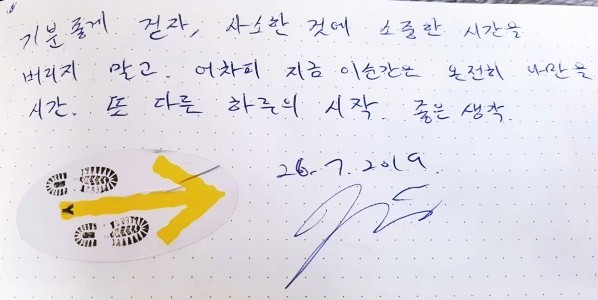 기분좋게 걷자, 사소한 것에 소중한 시간을
버리지 말고. 어차피 지금 이순간은 온전히 나만을
시간. 또 다른 하루의 시작. 좋은 생각.
26.7.2019.